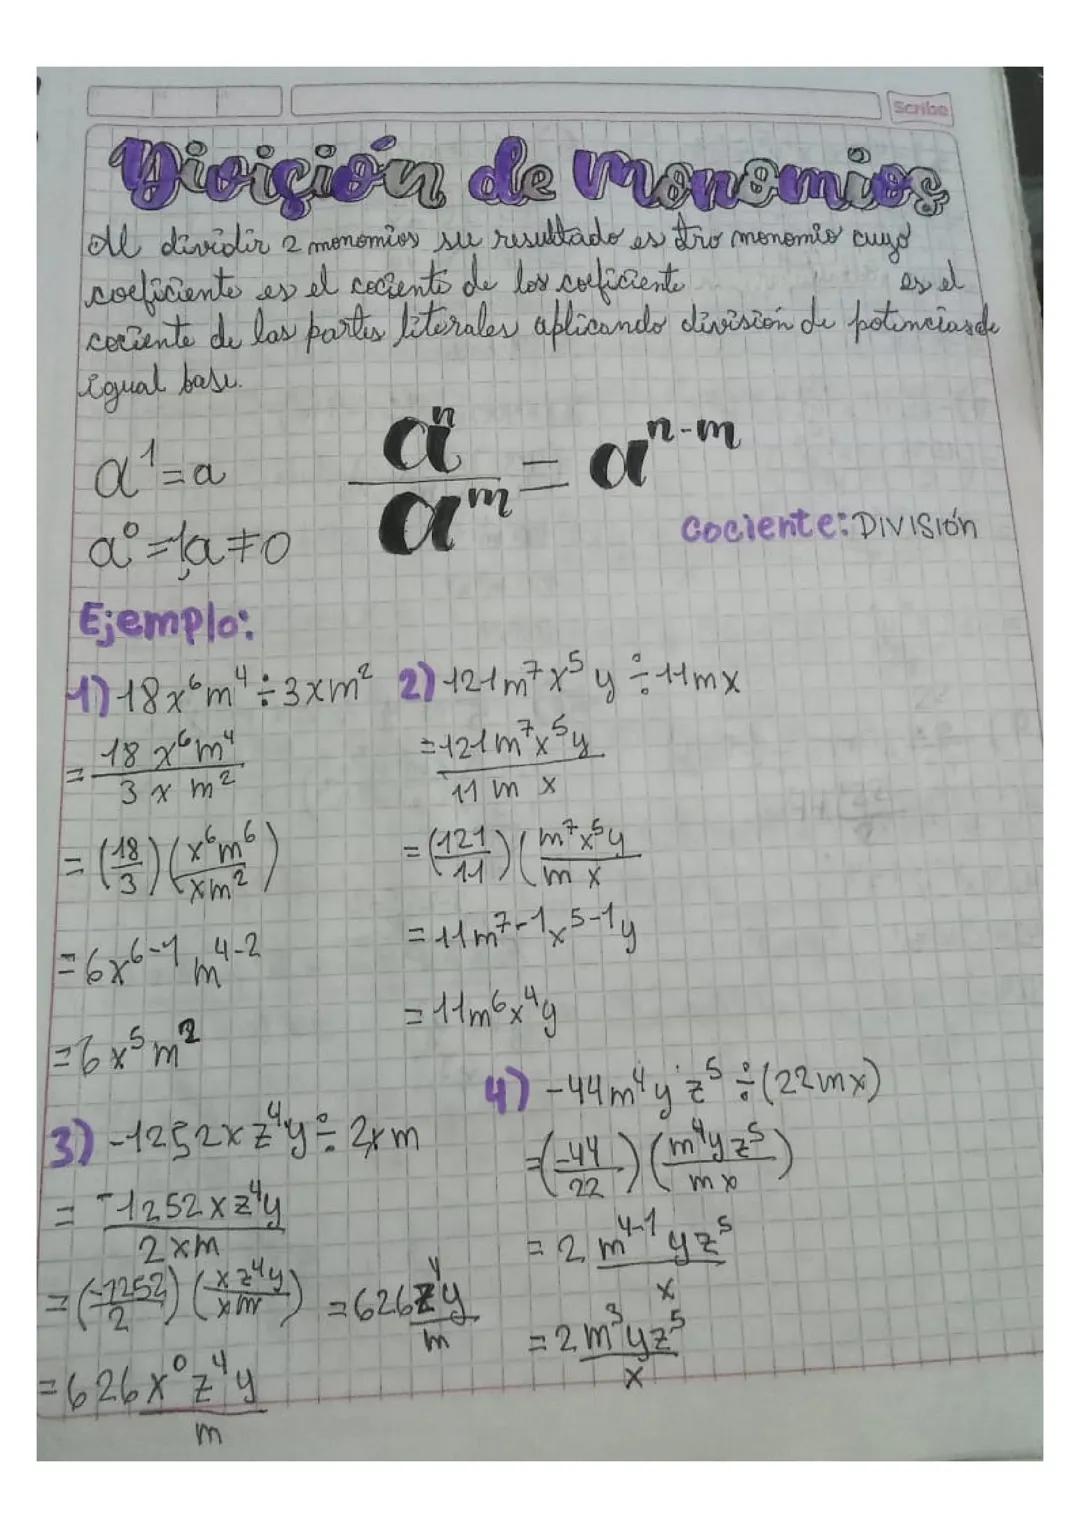 Scribe
División de monomios
Al dividir 2 monomios su resultado es otro monomio cuyo
coeficiente es el cociente de los coeficiente es el
cociente de las partes literales aplicando división de potencias de
igual base.
a¹=a
a⁰=1, a≠0
aⁿ/aᵐ = aⁿ⁻ᵐ
Cociente: DIVISIÓN
Ejemplo:
1) 18x⁶m⁴÷3xm²
= 18 x⁶m⁴ / 3 x m²
= (18/3) (x⁶m⁶/xm²)
= 6x⁶⁻¹ m⁴⁻²
= 6x⁵m²
2) 121m⁷x⁵y÷11mx
= 121m⁷x⁵y / 11 m x
= (121/11) (m⁷x⁵y / m x
= 11m⁷⁻¹x⁵⁻¹y
= 11m⁶x⁴y
3) -1252xz⁴y÷2xm
= -1252xz⁴y / 2xm
= (-1252/2) (xz⁴y/xm)
= 626x⁰z⁴y / m
= 626z⁴y / m
4) -44m⁴yz⁵÷(22mx)
= (-44/22) (m⁴yz⁵/mx)
= 2 m⁴⁻¹yz⁵ / x
= 2m³yz⁵ / x